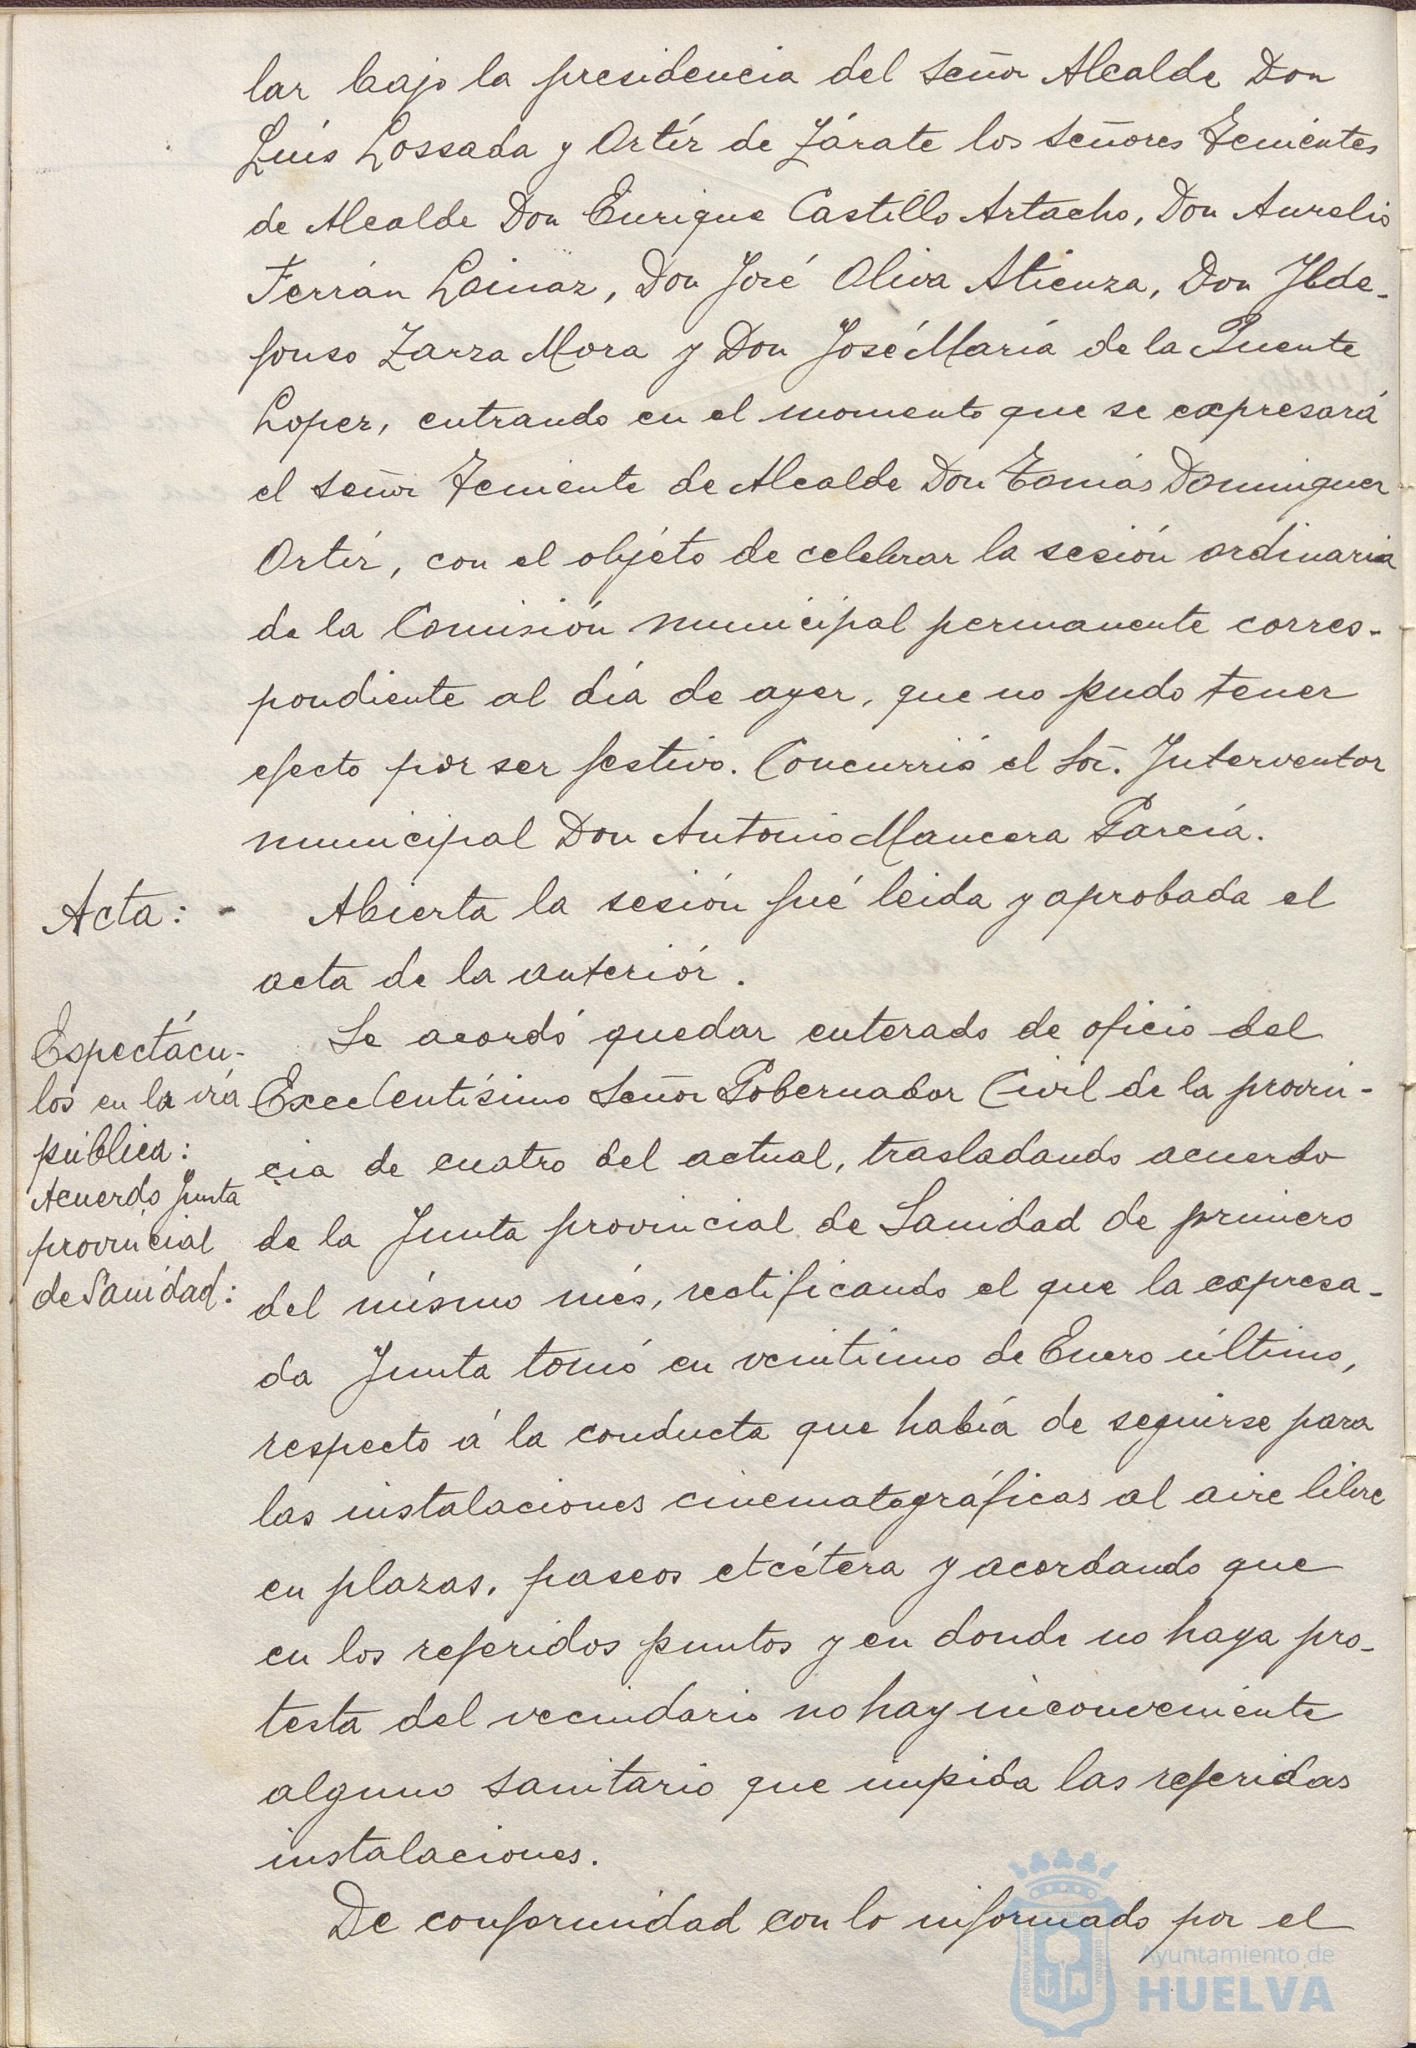 lar bajo la presidencia del Señor Alcalde Don
Luís Lossada y Ortíz de Zárate los señores Tenientes
de Alcalde Don Enrique Castillo Artacho, Don Aurelio
Ferrán Loinaz, Don José Oliva Atienza, Don Ilde-
fonso Zarza Mora y Don José María de la Puente
Lopez, entrando en el momento que se expresará
el señor Teniente de Alcalde Don Tomás Dominguez
Ortíz, con el objéto de celebrar la sesión ordinaria
de la Comisión municipal permanente corres-
pondiente al día de ayer, que no pudo tener
efecto por ser festivo. Concurrió el Sor. Interventor
municipal Don Antonio Mancera García.
Acta: -
Abierta la sesión fué leida y aprobada el
acta de la anteriór.
Espectácu-
los en la vía
pública:
Acuerdo Junta
provincial
de Sanidad:
Se acordó quedar enterado de oficio del
Excelentísimo Señor Gobernador Civil de la provin-
cia de cuatro del actual, trasladando acuerdo
de la Junta provincial de Sanidad de primero
del mísmo més, rectificando el que la expresa-
da Junta tomó en veintiuno de Enero último,
respecto á la conducta que había de seguirse para
las instalaciones cinematográficas al aire libre
en plazas, paseos etcétera y acordando que
en los referidos puntos y en donde no haya pro-
testa del vecindario no hay inconveniente
alguno sanitario que impida las referidas
instalaciones.
De conformidad con lo informado por el
Ayuntamiento de
HUELVA